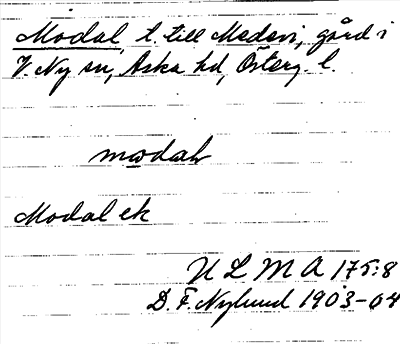 Modal, t. till Medevi, gård i
V. Ny sn, Aska hd, Österg. l.
modal
Modal ek
U L M A 175:8
D. F. Nylund 1903-04